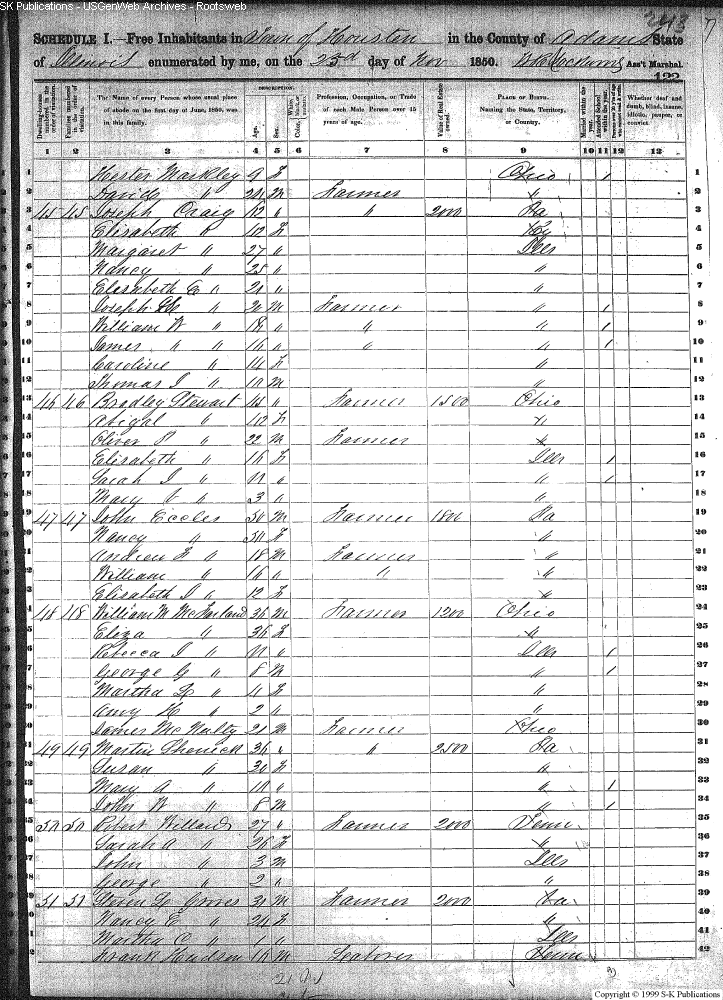 SK Publications - USGenWeb Archives - Rootsweb
243 7
SCHEDULE I.—Free Inhabitants in Town of Houston in the County of Adams State
of Illinois enumerated by me, on the 23d day of Nov 1850. Ass't Marshal.
122
Dwelling-houses numbered in the order of visitation. Families numbered in the order of visitation. The Name of every Person whose usual place of abode on the first day of June, 1850, was in this family. DESCRIPTION. Age. Sex. White, black, or mulatto. Color, Profession, Occupation, or Trade of each Male Person over 15 years of age. Value of Real Estate owned. PLACE OF BIRTH. Naming the State, Territory, or Country. Married within the year. Attended School within the year. Whether deaf and dumb, blind, insane, idiotic, pauper, or convict.
1 2 3 4 5 6 7 8 9 10 11 12 13
1 Hester Markley 9 F Ohio 1 1
2 David " 20 M Farmer " 2
3 45 45 Joseph Craig " " 2000 Pa 3
4 Elisabeth " F Ky 4
5 Margaret " 27 " Ills 5
6 Nancy " 25 " " 6
7 Elisabeth E " 21 " " 7
8 Joseph " 20 M Farmer " 1 8
9 William W " 18 " " " 1 9
10 James " " 16 " " " 1 10
11 Caroline " 14 F " 11
12 Thomas J " 10 M " 12
13 46 46 Bradley Stewart " Farmer 1500 Ohio 13
14 Abigal " F " 14
15 Oliver P " 22 M Farmer " 15
16 Elisabeth " 16 F Ills 1 16
17 Sarah J " 11 " " 1 17
18 Mary " 3 " " 18
19 47 47 John Eccles 50 M Farmer 1800 Pa 19
20 Nancy " 50 F " 20
21 Andrew F " 18 M Farmer " 21
22 William " 16 " " " 22
23 Elisabeth J " 12 F " 23
24 48 48 William M McFarland 36 M Farmer 1200 Ohio 24
25 Eliza " 36 F " 25
26 Rebecca J " 11 " Ills 1 26
27 George G " 8 M " 1 27
28 Martha " 4 F " 28
29 Amy " 2 " " 29
30 James McNulty 21 M Farmer Ohio 30
31 49 49 Martin Shenick 36 " " 2500 Pa 31
32 Susan " 30 F " 32
33 Mary A " 10 " " 1 33
34 John W " 8 M " 1 34
35 50 50 Robert Willard 27 " Farmer 2000 Tenn 35
36 Sarah A " 26 F " 36
37 John " 3 M Ills 37
38 George " 2 " " 38
39 51 51 Groves 31 M Farmer 2000 39
40 Nancy E " 24 F " 40
41 Martha C " 1 " Ills 41
42 Frank Hudson M Laborer Tenn 42
Copyright © 1999 S-K Publications